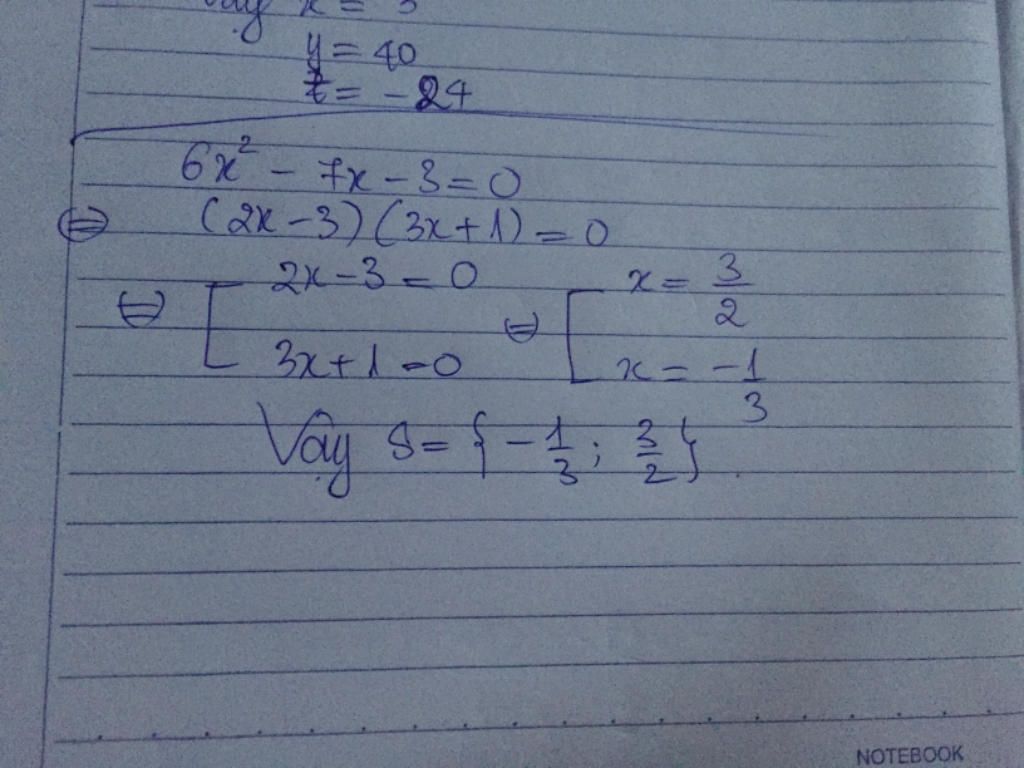 x =
y = 40
z = -24
6x² - 7x - 3 = 0
⇔ (2x - 3)(3x + 1) = 0
⇔ [ 2x - 3 = 0 ⇔ [ x = 3/2
3x + 1 = 0 x = -1/3
Vậy S = { -1/3 ; 3/2 }
NOTEBOOK